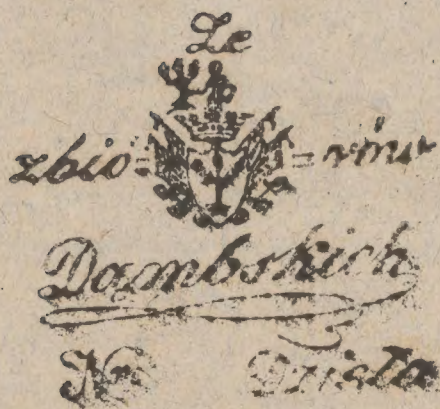 Ze
zbio= =rów
Dambskich
No Dzieła